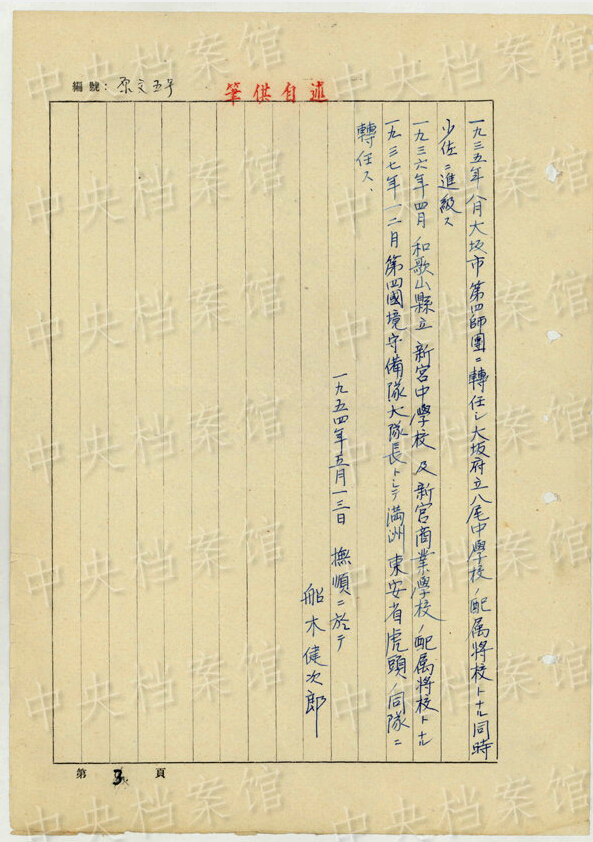 編號：原文五号
述自供筆
一九三五年八月大坂市第四師團ニ轉任シ大坂府立八尾中學校ノ配属將校トナル同時
少佐ニ進級ス
一九三六年四月和歌山縣立新宮中學校及新宮商業學校ノ配属將校トナル
一九三七年一二月第四國境守備隊大隊長トシテ満洲東安省虎頭ノ同隊ニ
轉任ス、
一九五四年五月一三日 撫順ニ於テ
船木健次郎
第 3 頁
中央档案馆